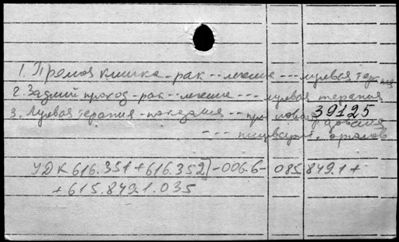 1. Прямая кишка - рак -- лечение --- лучевая терапия
2. Задний проход - рак -- лечение --- лучевая терапия
3. Лучевая терапия - показания -- при новообразования
39125
--- пищевар. органов
УДК 616.351+616.352]-006.6-085.849.1+
+615.849.1.035